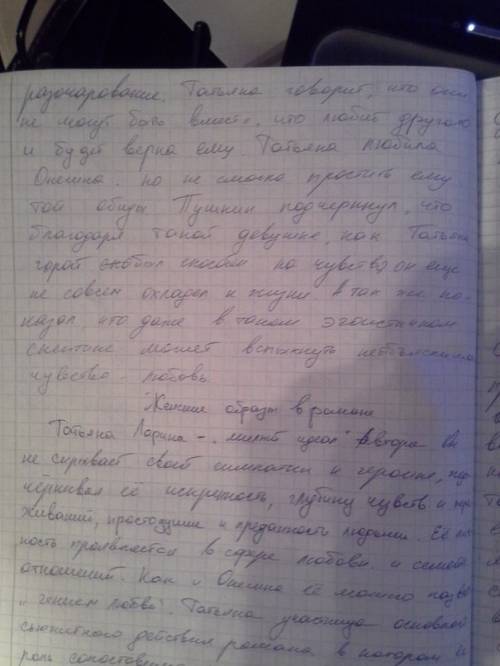 разочарование. Татьяна говорит, что они
не могут быть вместе, что любит другого
и будет верна ему. Татьяна любила
Онегина, но не смогла простить ему
той обиды. Пушкин подчеркнул, что
благодаря такой девушке, как Татьяна
герой способен на чувства, он еще
не совсем охладел к жизни. А так же по-
казал, что даже в таком эгоистичном
скептике может вспыхнуть
чувство - любовь.
Женские образы в романе
Татьяна Ларина - "милый идеал" автора. Он
не скрывает своей симпатии к героине, под
чёркивая её искренность, глубину чувств и пере
живаний, простодушие и преданность людям. Её лич
ность проявляется в сфере любви и семей
отношений. Как и Онегина её можно назва
"гением любви". Татьяна участница основной
сюжетного действия романа в котором её
роль сопоставима